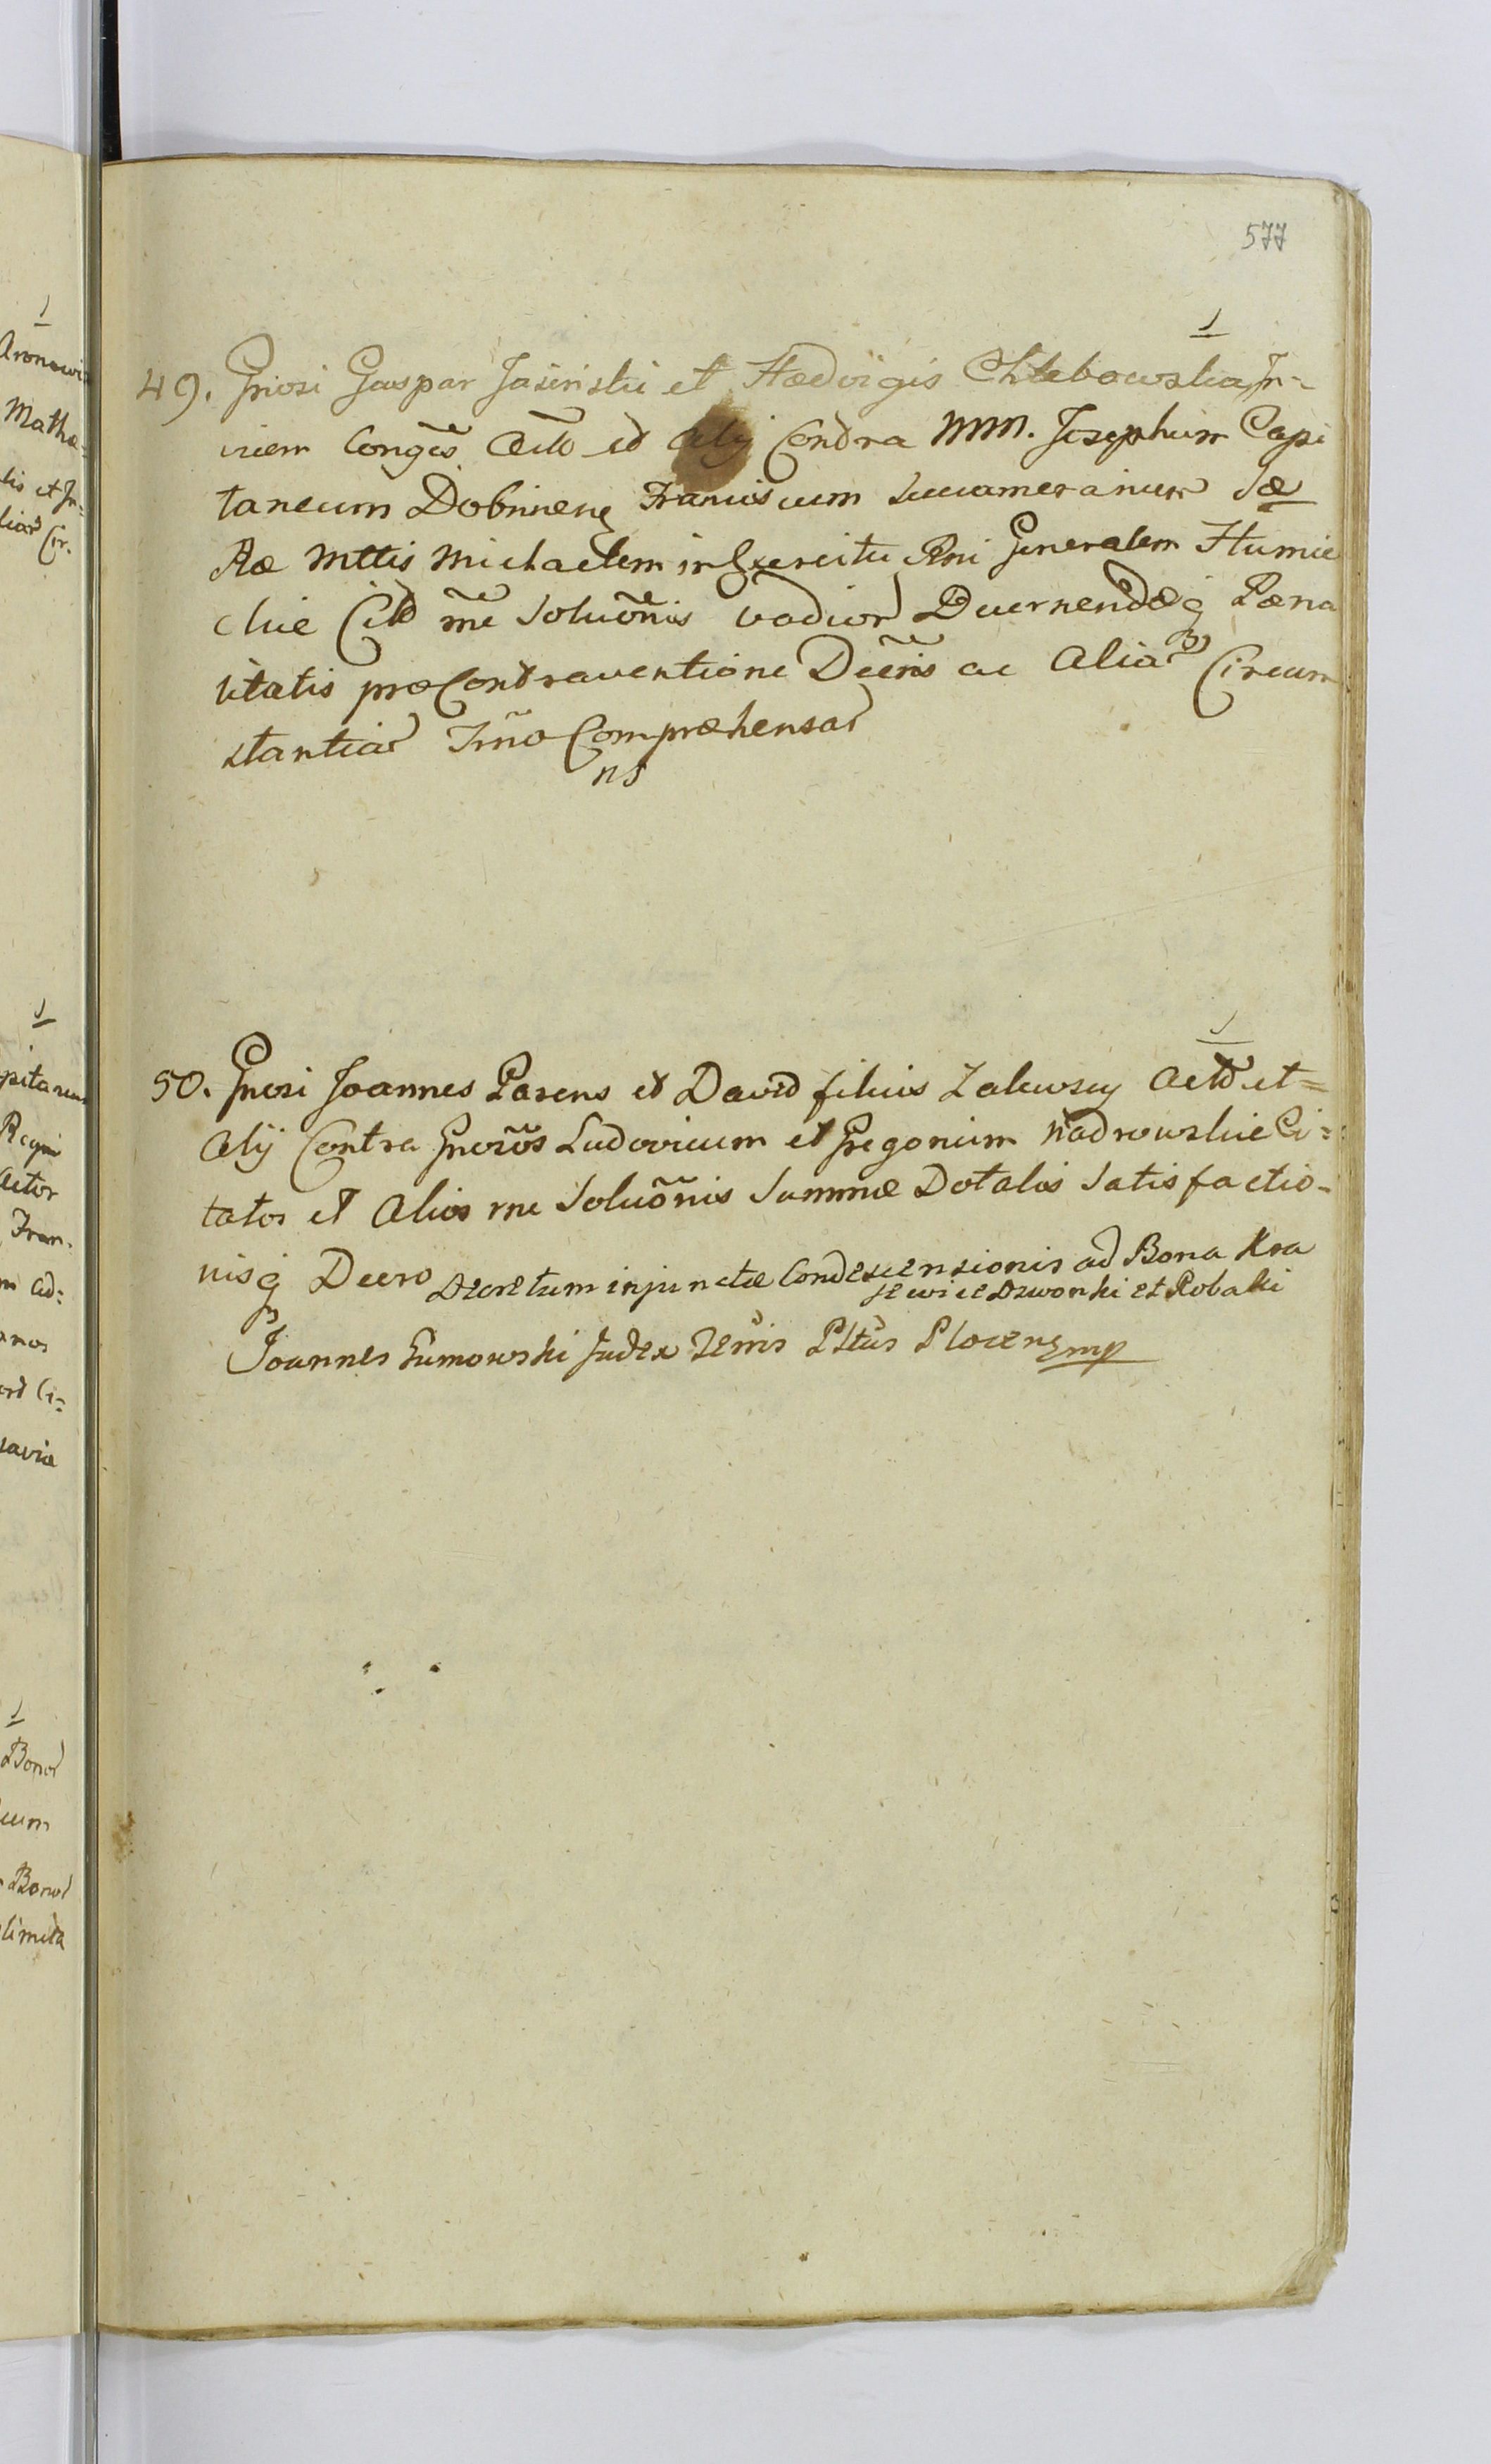 577
1
49. Gnosi Gaspar Jasinski et Hedvigis Chlebowska In-
vicem Conges Acto et Alij Contra MM. Josephum Capi
taneum Dobrinens Franciscum Succamerarium Sæ
Ræ Mttis Michaelem in Exercitu Rni Generalem Humie
ckie Citd rne Soluonis Vadior Decernendæq Pæna
litatis præ Contraventione Decris ac Aliar Circum
stantiar Trno Compræhensar
ns
1
50. Gnosi Joannes Parens et David filius Zalewscy Actd et=
Alij Contra Gnosos Ludovicum et Gregorium Nadrowskie Ci=
tatos et Alios rne Soluonis Summæ Dotalis Satisfactio-
nisq Decro Decretum injunctæ Condescensionis ad Bona Kra
jewice Dzwonki et Robaki
Joannes Gumowski Judex Tenris Pltus Plocens mp
Aronowi
Mathæ=
lis et In=
liar Cir.
1
pitaneum
Regni
Actor
Fran.
m Ad=
anos
Ci=
saviæ
1
Bonor
cum
Bonor
limita